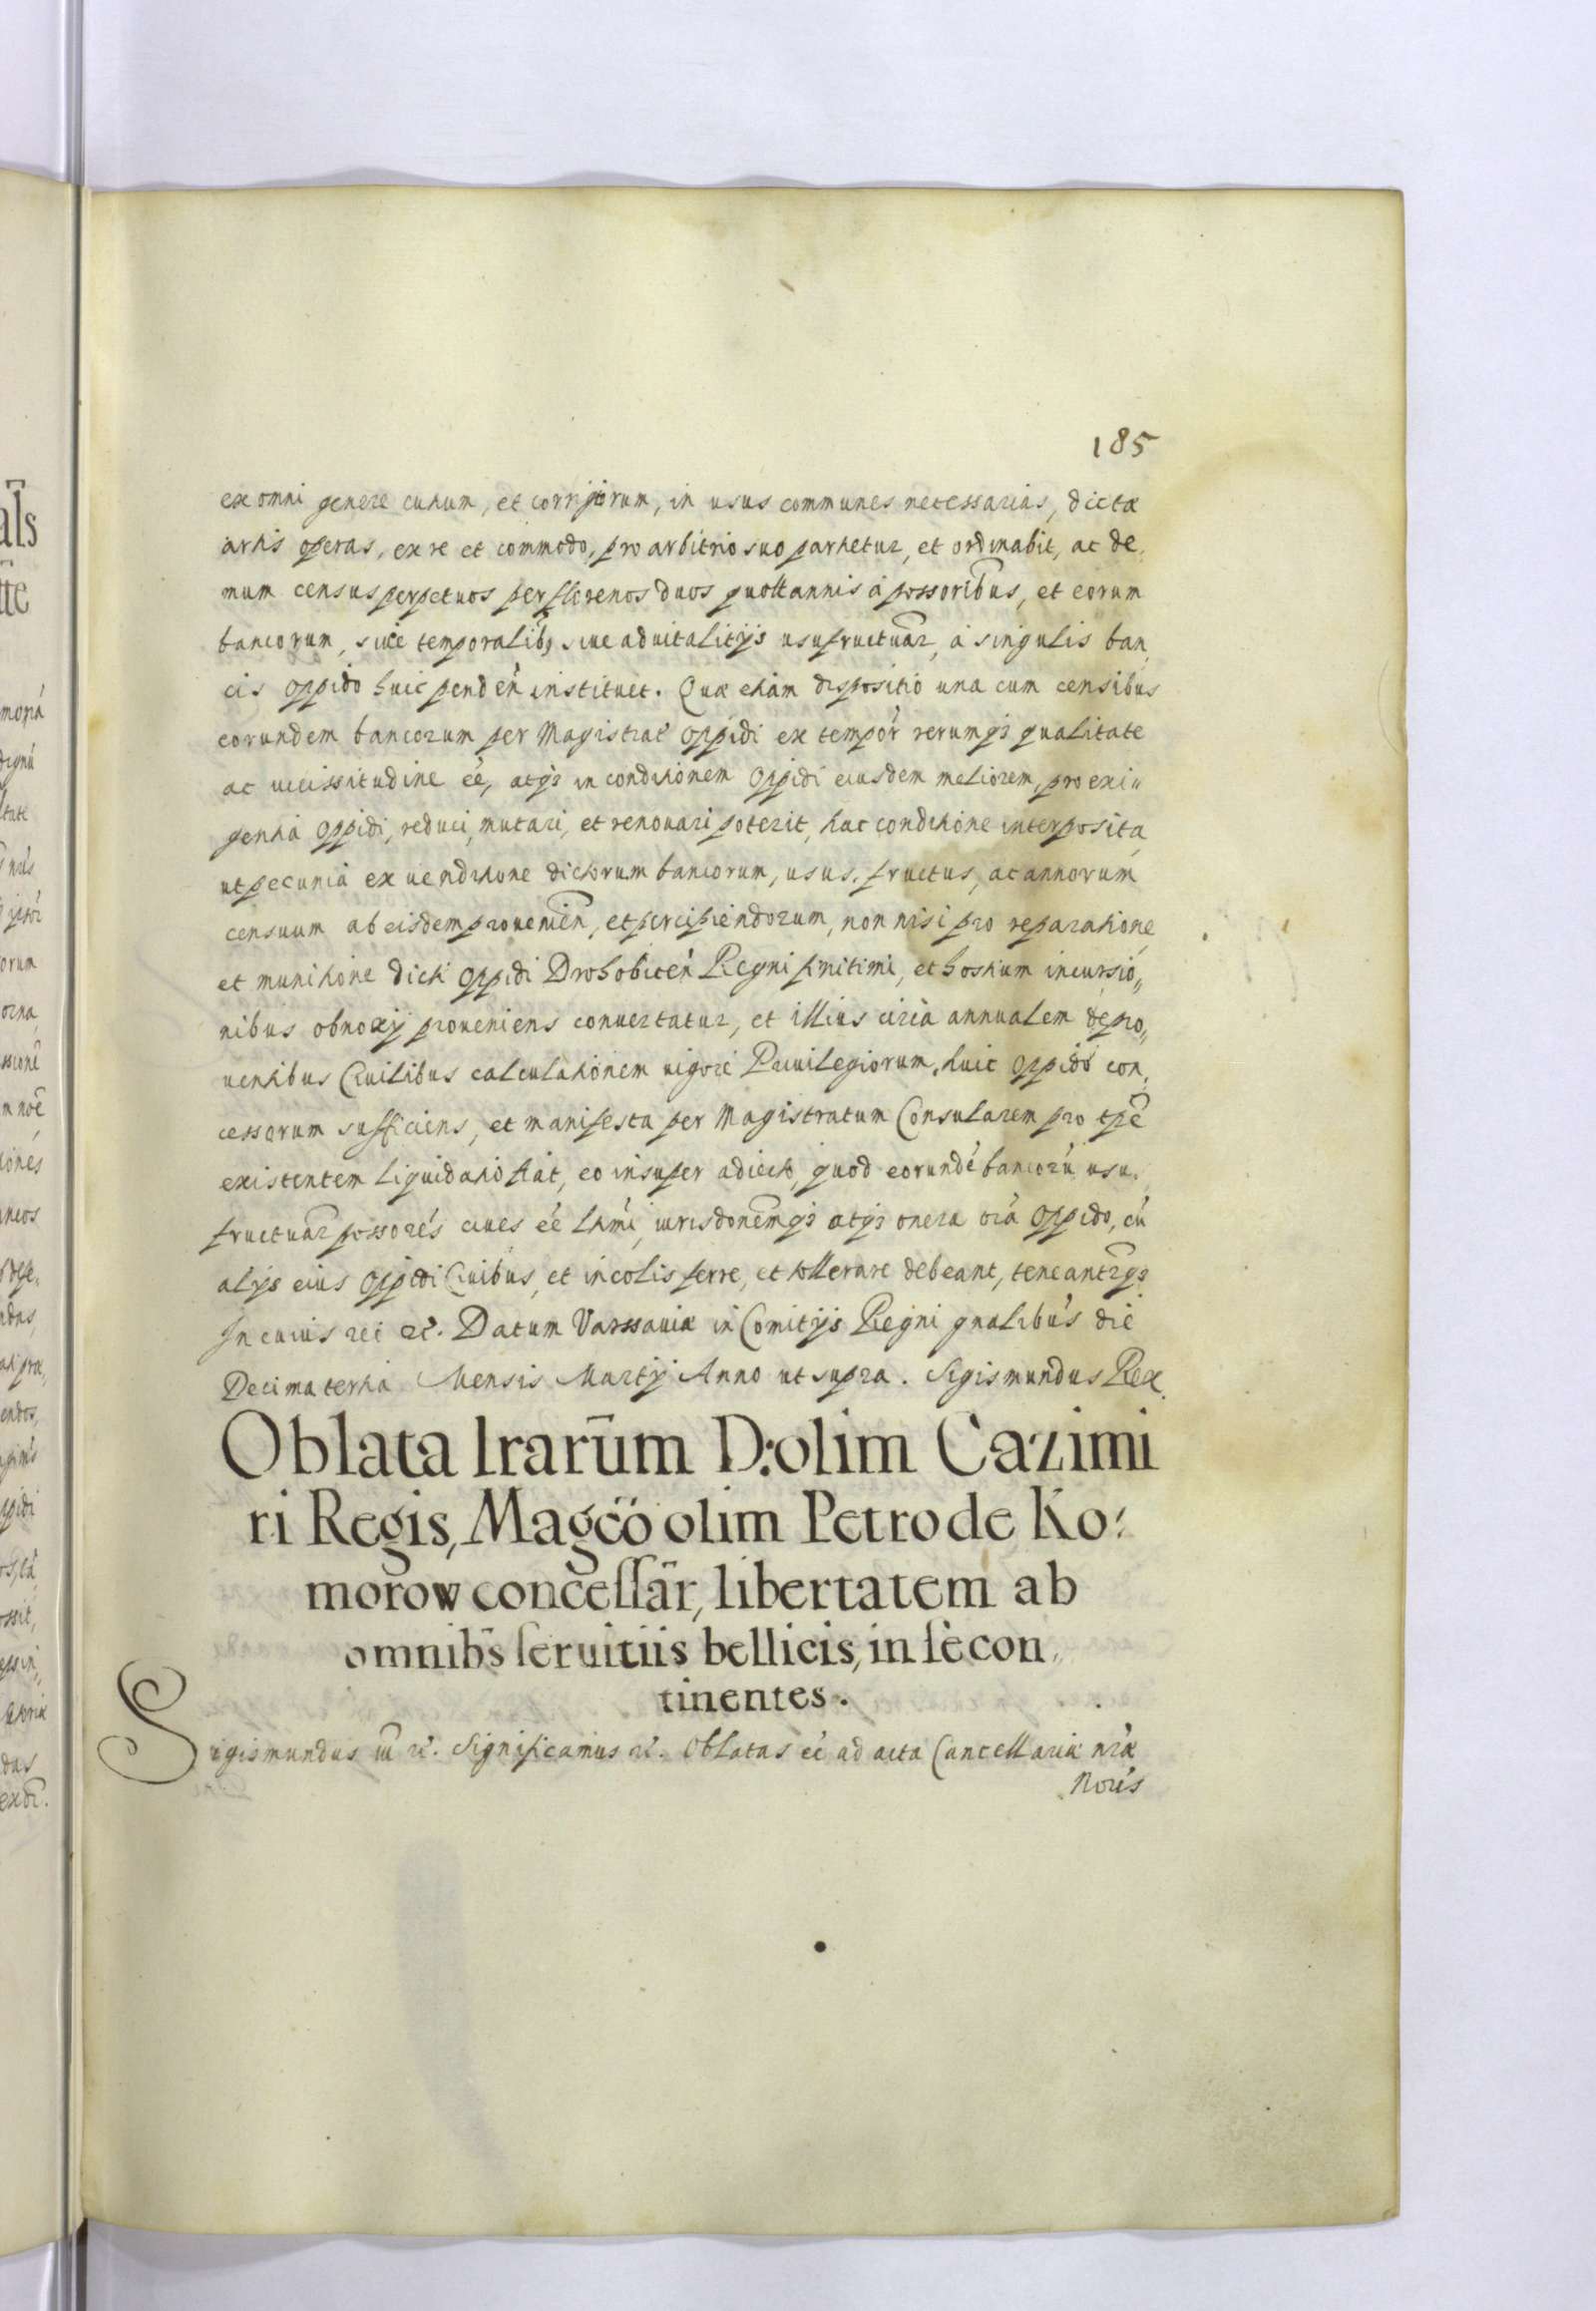 185
ex omni genere cutium, et corrigiorum, in usus communes necessarias, dictæ
artis operas, ex re et commodo, pro arbitrio suo partietur, et ordinabit, ac de,
mum census perpetuos per florenos duos quottannis à possoribus, et eorum
bancorum, siue temporalibꝫ siue aduitalitijs usufructuar̃, à singulis ban,
cis oppido huic penden̄ instituet. Quæ etiam dispositio una cum censibus
eorundem bancorum per Magistrat̃ oppidi ex tempor̃ rerumqꝫ qualitate
ac uicissitudine eē, atqꝫ in conditionem oppidi eiusdem meliorem, pro exi„
gentia oppidi, reduci, mutari, et renouari poterit, hac conditione interposita,
ut pecunia ex uenditione dictorum bancorum, usus, fructus, ac annorum
censuum ab eisdem prouenien̄, et percipiendorum, non nisi pro reparatione
et munitione dicti oppidi Drohobicen̄ Regni finitimi, et hostium incursio„
nibus obnoxij proueniens conuertatur, et illius circa annualem de pro„
uentibus Ciuilibus calculationem uigore Priuilegiorum, huic oppido con,
cessorum sufficiens, et manifesta per Magistratum Consularem pro tp̄e
existentem liquidatio fiat, eo insuper adiecto, quod eorundē bancorū usu,
fructuar̃ possorēs ciues eē l̃timi, iurisdonemqꝫ atqꝫ onera oīa oppido, cū
alijs eius oppidi Ciuibus, et incolis ferre, et tollerare debeant, teneantr̃qꝫ
In cuius rei rc̃. Datum Varssauiæ in Comitijs Regni gnalibus die
Decima tertia Mensis Martij Anno ut supra. Sigismundus Rex.
Oblata lrarūm D: olim Cazimi
ri Regis, Magc̈o olim Petro de Ko:
morow concessār, libertatem ab
omnibs̄ seruitiis bellicis, in se con,
tinentes.
Sigismundus iii rc̃. Significamus rc̃. Oblatas eē ad acta Cancellariæ nræ
Noīs